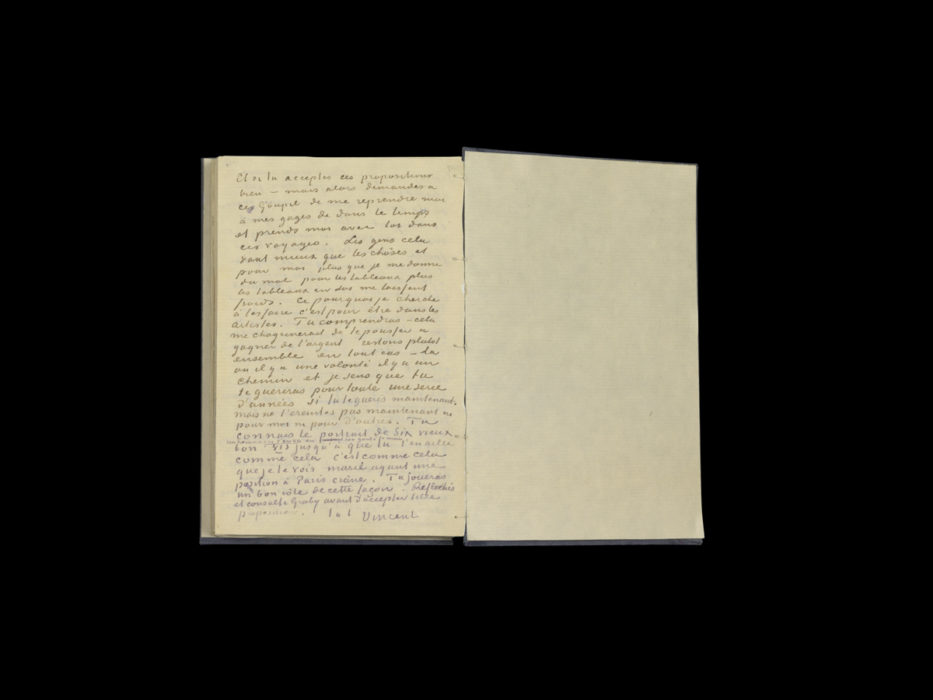 Et si tu acceptes ces propositions
bien – mais alors demandes à
ces Goupil de me reprendre moi
à mes gages de dans le temps
et prends moi avec toi dans
ces voyages. Les gens cela
vaut mieux que les choses et
pour moi plus que je me donne
du mal pour les tableaux plus
les tableaux en soi me laissent
froids. Ce pourquoi je cherche
à les faire c'est pour être dans les
artistes. Tu comprendras – cela
me chagrinerait de te pousser à
gagner de l'argent restons plutôt
ensemble en tout cas – là
ou il y a une volonté il y a un
chemin et je sens que tu
te guériras pour toute une serie
d'années si tu te guéris maintenant.
Mais ne t'ereintes pas maintenant ni
pour moi ni pour d'autres. Tu
connais le portrait de Six vieux
bon
comme cela c'est comme cela
que je te vois marié ayant une
position à Paris crâne. Tu joueras
un bon rôle de cette façon. Reflechis
et consulte Gruby avant d'accepter cette
proposition. t. à t. Vincent